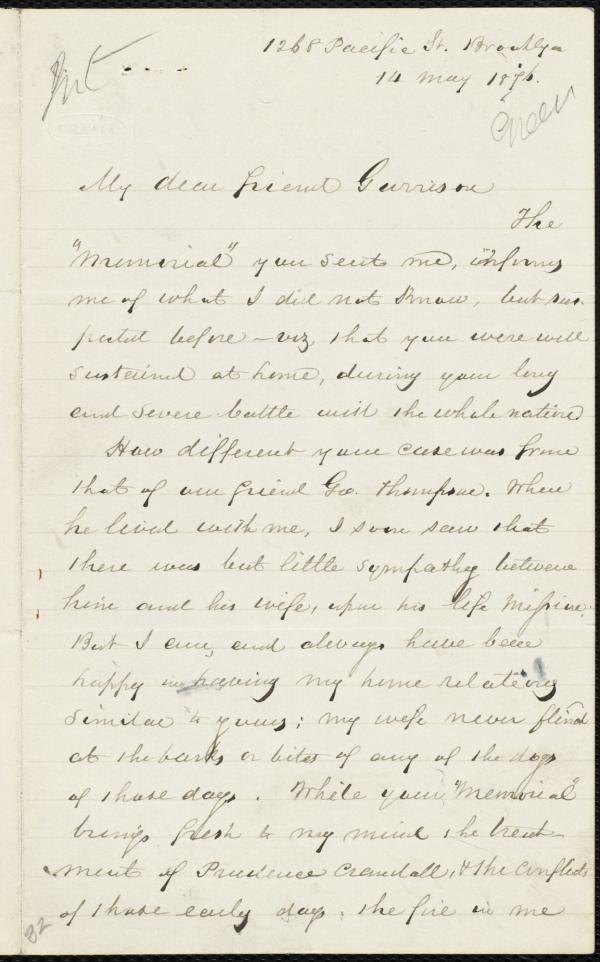 1268 Pacific St. Brooklyn
14 May 1876.
Green
My dear friend Garrison
The
"Memorial" you sent me, informs
me of what I did not know, but sus-
pected before – viz, that you were well
sustained at home, during your long
and severe battle with the whole nation
How different your case was from
that of our friend Geo. Thompson. When
he lived with me, I soon saw that
there was but little sympathy between
him and his wife, upon his life mission.
But I am, and always have been
happy in having my home relations
similar to yours; my wife never flinched
at the barks or bites of any of the dogs
of those days. While your "Memorial"
brings fresh to my mind the treat-
ment of Prudence Crandall, & the conflicts
of those early days, the fire in me
82